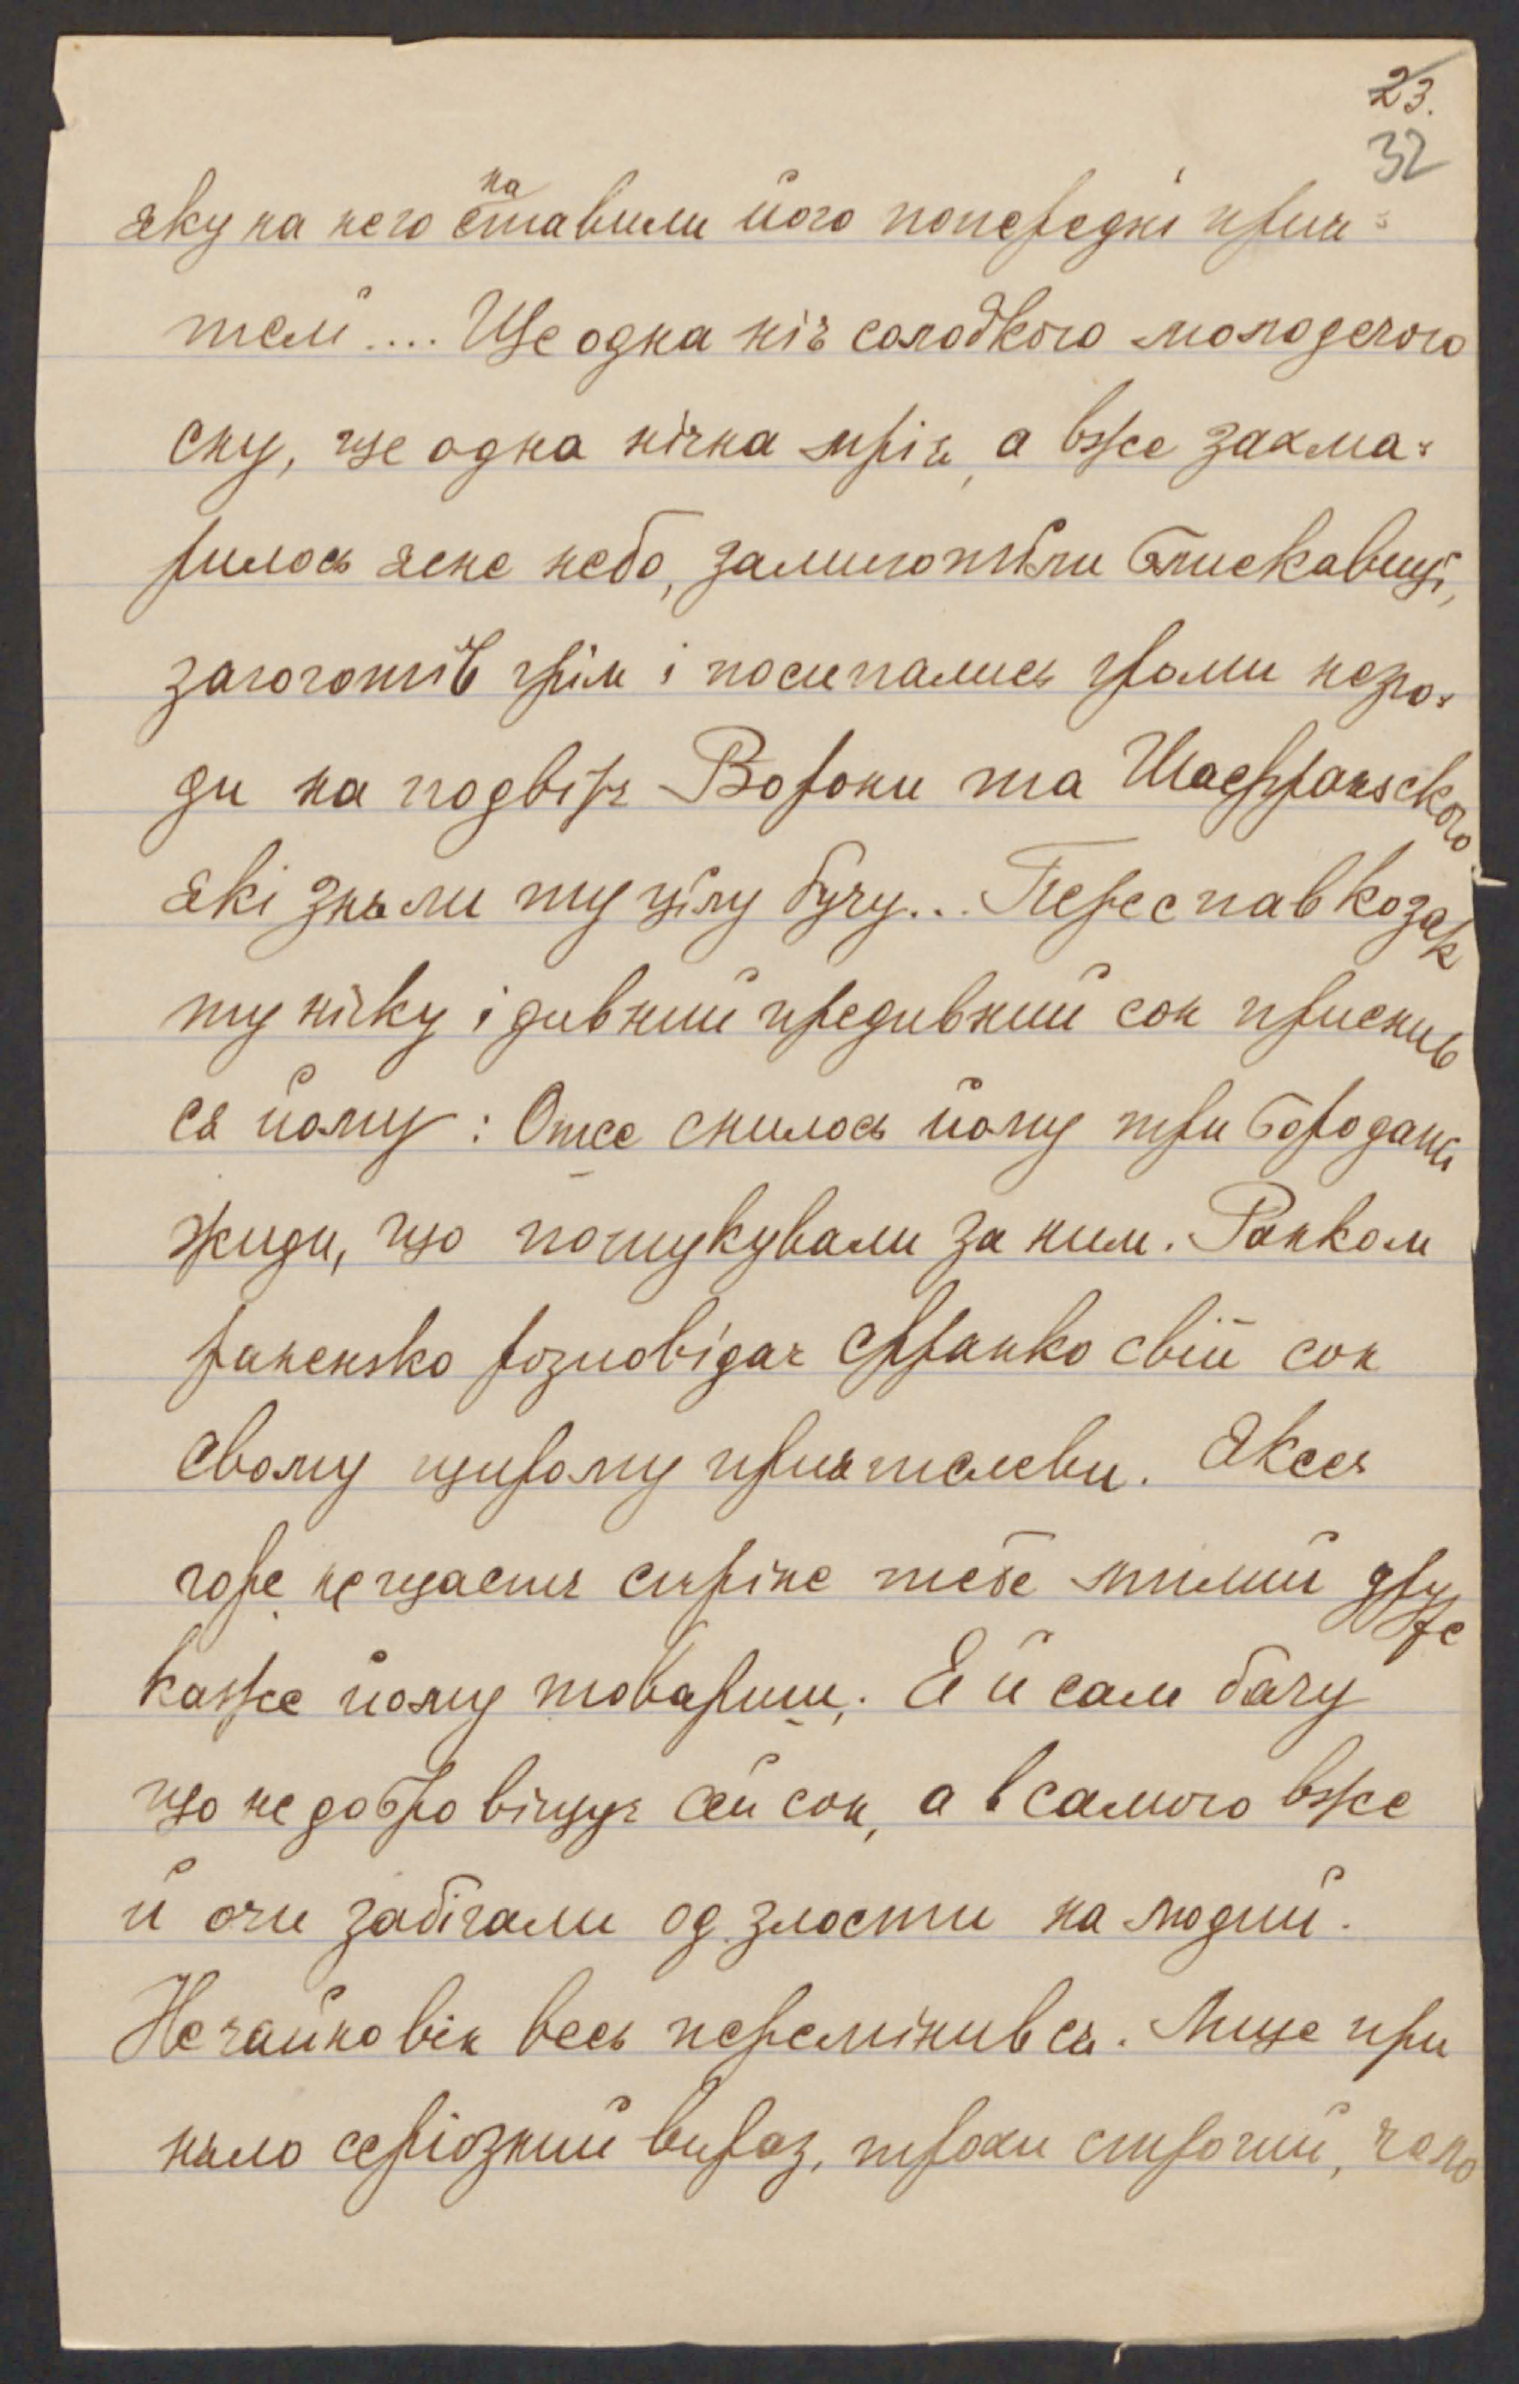 23.
32
на
яку на него ставили його попередні прия-
телї.... Ще одна ніч солодкого молодечого
сну, ще одна нічна мрія, а вже захма-
рилось ясне небо, замиготїли блискавиці,
загоготїв грім і посипались громи незго-
ди на подвірє Ворони та Шафранського
які зняли ту цїлу бучу... Переспав козак
ту нічку і дивний предивний сон приснив
ся йому: Отсе снилось йому три бородаті
жиди, що пошукували за ним. Ранком
раненько розповідає Франко свій сон
свому щирому приятелеви. Якесь
горе нещастє стріне тебе милий друже
каже йому товариш. Я й сам бачу
що не добро віщує сей сон, а в самого вже
й очи забігали од злости на людий.
Нечайно він весь перемінив ся. Лице при
няло серіозний вираз, трохи строгий, чоло